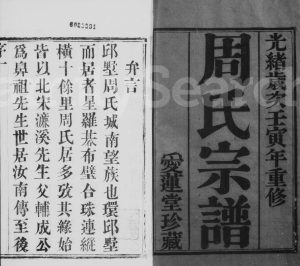 光緒歲次壬寅年重修
周氏宗譜
愛蓮堂珍藏
弁言
邱墅周氏城南望族也環邱墅
而居者星羅棊布璧合珠連縱
橫十餘里周氏居多攷其緣始
皆以北宋濂溪先生父輔成公
爲鼻祖先生世居汝南傳至後